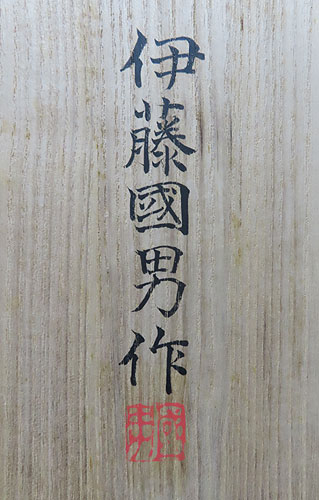 伊藤國男作